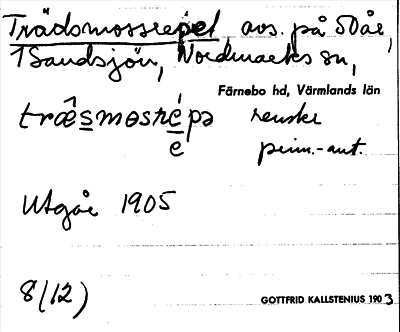 Trädsmossrepet avs. på 50 år,
1 Sandsjön, Nordmarks sn,
Färnebo hd, Värmlands län
renskr
prim.-ant.
e
Utgår 1905
8(12)
GOTTFRID KALLSTENIUS 1903